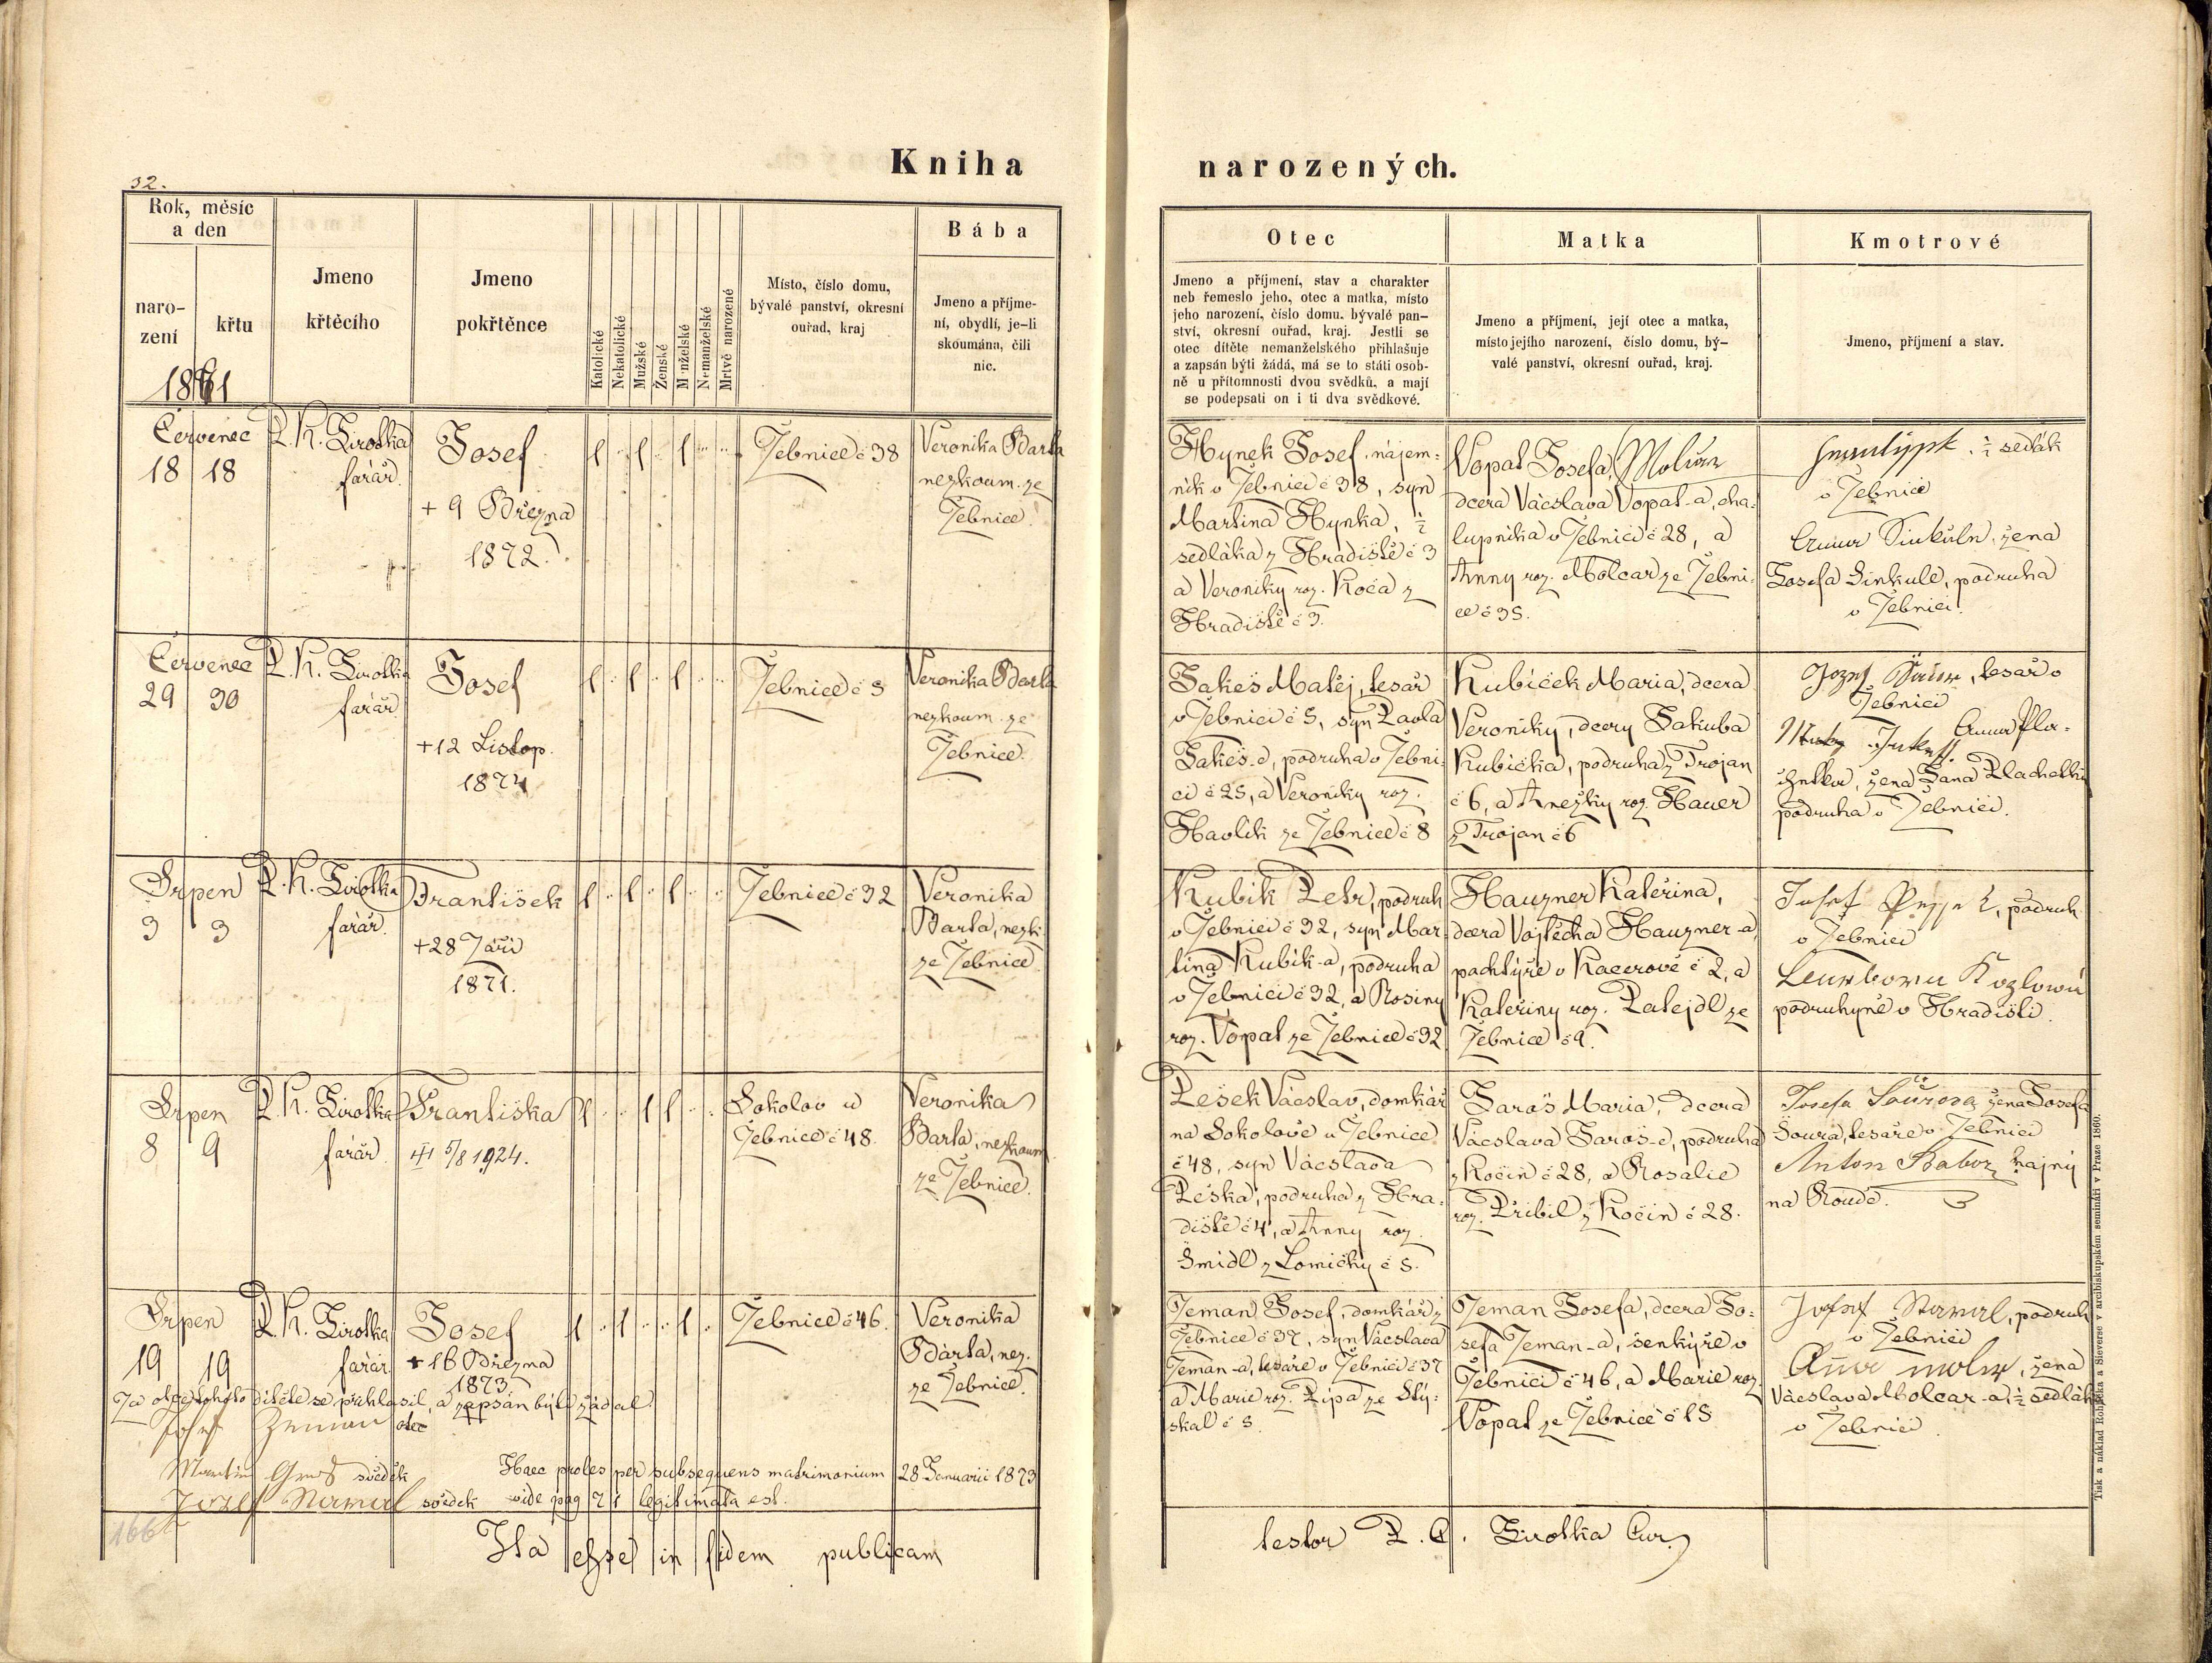 Kniha narozených.
32.
Rok, měsíc
a den
naro-
zení
křtu
Jmeno
křtěcího
Jmeno
pokřtěnce
Katolické
Nekatolické
Mužské
Ženské
Manželské
Nemanželské
Mrtvě narozené
Místo, číslo domu,
bývalé panství, okresní
ouřad, kraj
Bába
Jmeno a příjme-
ní, obydlí, je-li
skoumána, čili
nic.
Otec
Jmeno a příjmení, stav a charakter
neb řemeslo jeho, otec a matka, místo
jeho narození, číslo domu, bývalé pan-
ství, okresní ouřad, kraj. Jestli se
otec dítěte nemanželského přihlašuje
a zapsán býti žádá, má se to státi osob-
ně u přítomnosti dvou svědků, a mají
se podepsati on i ti dva svědkové.
Matka
Jmeno a příjmení, její otec a matka,
místo jejího narození, číslo domu, bý-
valé panství, okresní ouřad, kraj.
Kmotrové
Jmeno, příjmení a stav.
1871
Červenec
18 18
P. K. Sirotka
farář.
Josef
+ 9 Března
1872.
Žebnice č 38
Veronika Barta
nezkoum. ze
Žebnice.
Hynek Josef, nájem=
ník v Žebnici č 38, syn
Martina Hynka, ½
sedláka z Hradiště č 3
a Veroniky roz. Koča z
Hradiště č 3.
Vopat Josefa,
dcera Václava Vopat-a, cha=
lupníka v Žebnici č 28, a
Anny roz. Molcar ze Žebni=
ce č 35.
½ sedlák
v Žebnici
žena
Josefa Sinkule, podruha
v Žebnici.
Červenec
29 30
P. K. Sirotka
farář
Josef
+12 Listop.
1874
Žebnice č 5
Veronika Barta
nezkoum. ze
Žebnice.
Jakeš Matěj, tesař
v Žebnici č 5, syn Pavla
Jakeš-e, podruha v Žebni=
ci č 25, a Veroniky roz.
Havlík ze Žebnice č 8
Kubíček Maria, dcera
Veroniky, dcery Jakuba
Kubíčka, podruha z Trojan
č 6, a Anežky roz. Hauer
z Trojan č 6
tesař v
Žebnici
Anna Pla=
žena Jana Plachetki
podruha v Žebnici.
Srpen
3 3
P. K. Sirotka
farář.
František
+28 Září
1871.
Žebnice č 32
Veronika
Barta, nezk.
ze Žebnice
Kubík Petr, podruh
v Žebnici č 32, syn Mar
tina Kubík-a, podruha
v Žebnici č 32, a Rosiny
roz. Vopat ze Žebnice č 32
Hauzner Kateřina,
dcera Vojtěcha Hauzner-a,
pachtýře v Kacerově č 2, a
Kateřiny roz. Patejdl ze
Žebnice č 9.
Josef podruh
v Žebnici
Kozlowá
podruhyně v Hradišti.
Srpen
8 9
P. K. Sirotka
farář
Františka
5/8 1924.
Sokolov u
Žebnice č 48.
Veronika
Barta, nezkoum
ze Žebnice.
Pešek Václav, domkář
na Sokolově u Žebnice
č 48, syn Václava
Peška, podruha z Hra=
diště č 4, a Anny roz.
Šmidl z Lomičky č 5.
Jaroš Maria, dcera
Václava Jaroš-e, podruha
z Kočin č 28, a Rosalie
roz. Přibil z Kočin č 28.
Josefa Šourova žena Josefa
Šoura, tesaře v Žebnici
Anton Babor hajný
na Roudě.
Srpen
19 19
P. K. Sirotka
farář
Josef
+ 16 Března
1873
Žebnice č 46.
Veronika
Barta, nez.
ze Žebnice.
Zeman Josef, domkář z
Žebnice č 37, syn Václava
Zeman-a, tesaře v Žebnici č 37
a Marie roz. Pípa ze Stý=
skal č 3.
Zeman Josefa, dcera Jo=
sefa Zeman-a, šenkýře v
Žebnici č 46, a Marie roz.
Vopat ze Žebnice č 15
Josef podruh
v Žebnici
žena
Václava Molcar-a, ½ sedlák
v Žebnici
Za otce tohoto dítěte se přihlásil, a zapsán být žádal
Josef Zeman otec
Martin svědek
Josef svědek
Haec proles per subsequens matrimonium 28 Januarii 1873
vide pag 71 legitimata est.
166
Ita esse in fidem publicam
testor P. C. Sirotka Cur.
Tisk a náklad Rohlíčka a Sieverse v arcibiskupském semináři v Praze 1860.